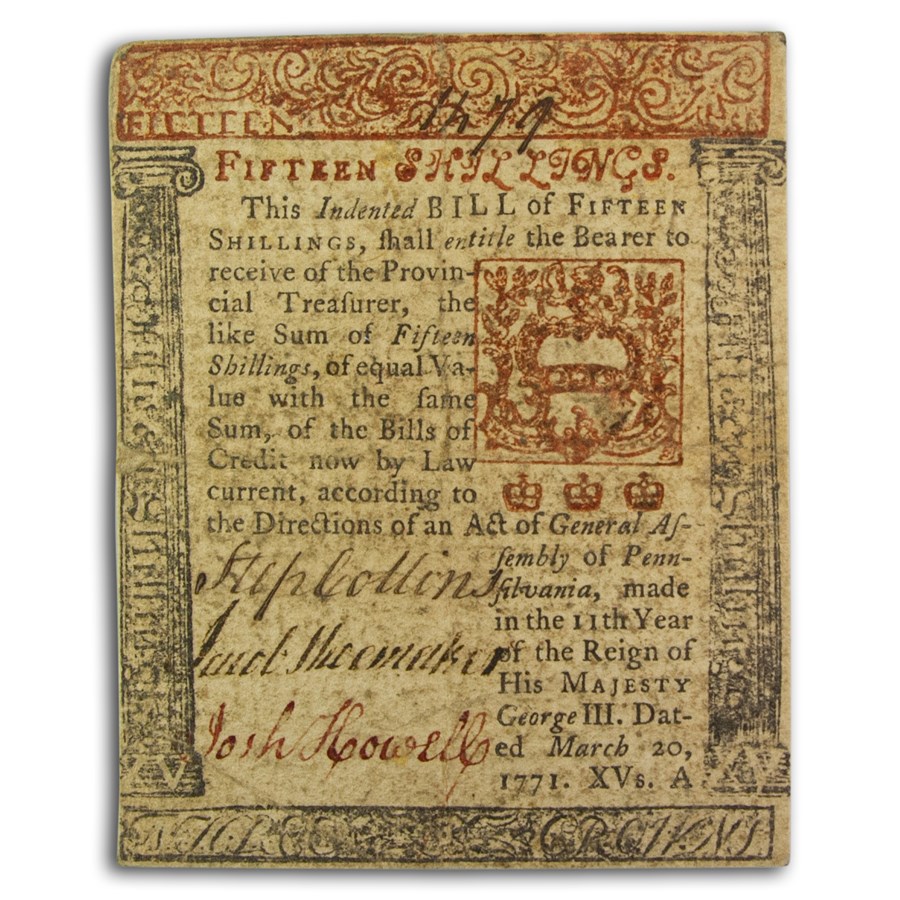 FIFTEEN
FIFTEEN SHILLINGS.
This Indented BILL of FIFTEEN
SHILLINGS, ſhall entitle the Bearer to
receive of the Provin-
cial Treaſurer, the
like Sum of Fifteen
Shillings, of equal Va-
lue with the ſame
Sum, of the Bills of
Credit now by Law
current, according to
the Directions of an Act of General Aſ-
ſembly of Penn-
ſilvania, made
in the 11th Year
of the Reign of
His MAJESTY
George III. Dat-
ed March 20,
1771. XVs. A
Step Collins
Jacob Shoemaker
Josh Howell
XV
XV
CROWNS